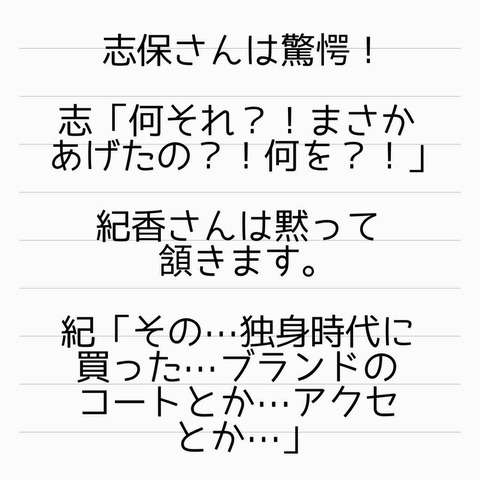 志保さんは驚愕！
志「何それ？！まさか
あげたの？！何を？！」
紀香さんは黙って
頷きます。
紀「その…独身時代に
買った…ブランドの
コートとか…アクセ
とか…」